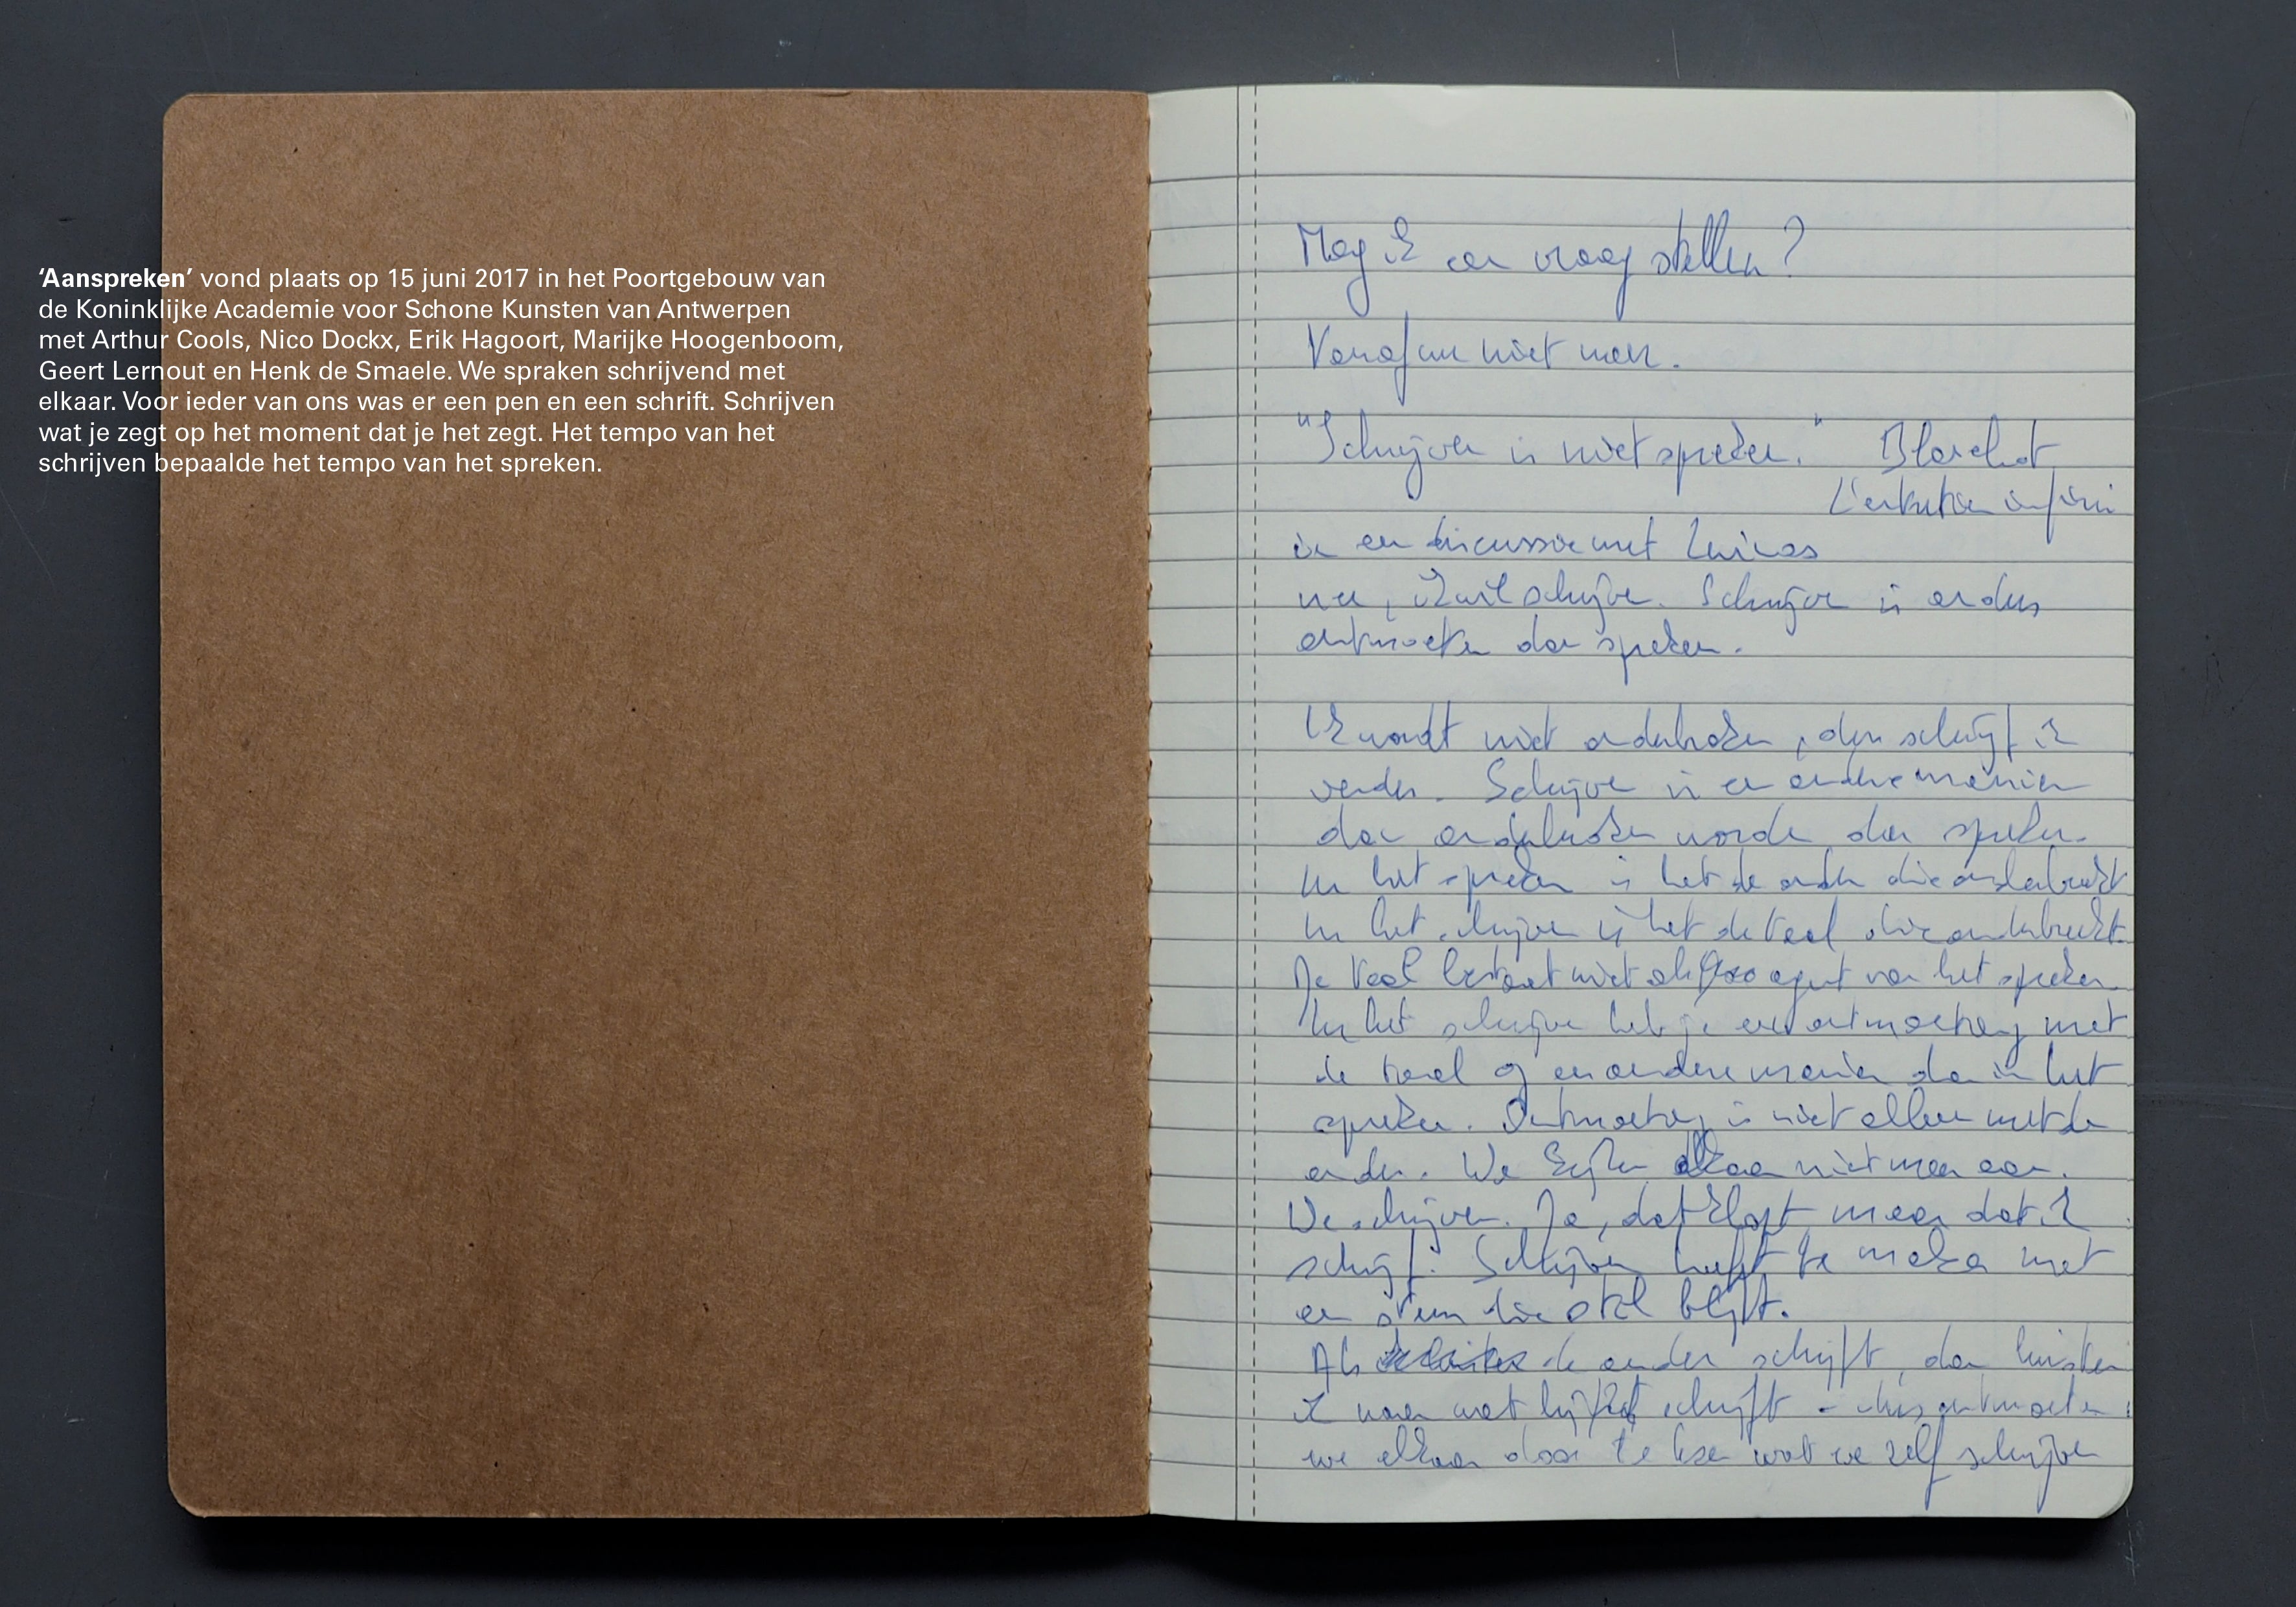 ‘Aanspreken’ vond plaats op 15 juni 2017 in het Poortgebouw van
de Koninklijke Academie voor Schone Kunsten van Antwerpen
met Arthur Cools, Nico Dockx, Erik Hagoort, Marijke Hoogenboom,
Geert Lernout en Henk de Smaele. We spraken schrijvend met
elkaar. Voor ieder van ons was er een pen en een schrift. Schrijven
wat je zegt op het moment dat je het zegt. Het tempo van het
schrijven bepaalde het tempo van het spreken.
Mag ik een vraag stellen?
Vanaf nu niet meer.
"Schrijven is niet spreken." Blanchot
L'entretien infini
in een discussie met Levinas
nee, ik wil schrijven. Schrijven is anders
ontmoeten dan spreken.
Ik wordt niet onderbroken, dus schrijf ik
verder. Schrijven is een andere manier
van onderbroken worden dan spreken.
In het spreken is het de ander die onderbreekt
In het schrijven is het de taal die onderbreekt.
De taal bestaat niet als van het spreken.
In het schrijven heb je een ontmoeting met
de taal op een andere manier dan in het
spreken. Ontmoeting is niet alleen met de
ander. We kijken elkaar niet meer aan.
We schrijven. Ja, dat klopt, maar dat ik
schrijf. Schrijven heeft te maken met
een stem die stil blijft.
Als de ander schrijft, dan luister
ik naar wat hij schrijft - dus ontmoeten
we elkaar door te lezen wat we zelf schrijven